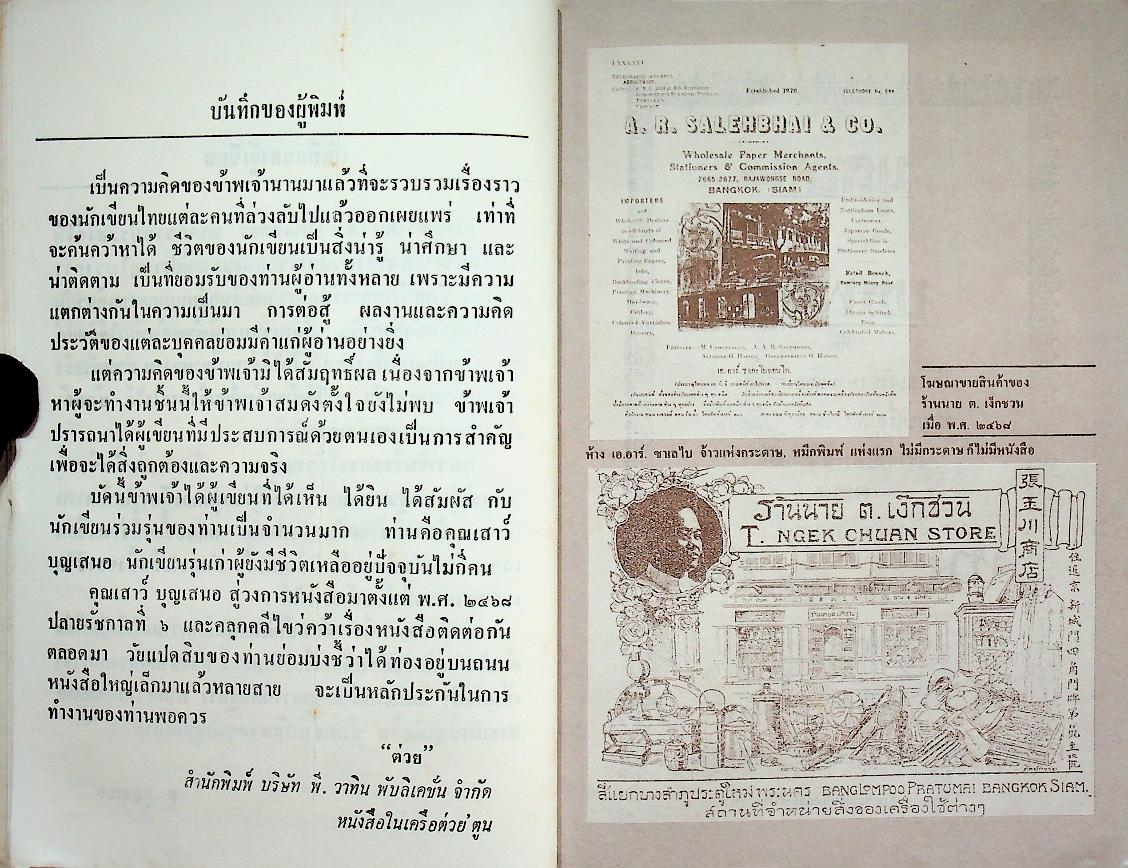 บันทึกของผู้พิมพ์
เป็นความคิดของข้าพเจ้านานมาแล้วที่จะรวบรวมเรื่องราว
ของนักเขียนไทยแต่ละคนที่ล่วงลับไปแล้วออกเผยแพร่ เท่าที่
จะค้นคว้าหาได้ ชีวิตของนักเขียนเป็นสิ่งน่ารู้ น่าศึกษา และ
น่าติดตาม เป็นที่ยอมรับของท่านผู้อ่านทั้งหลาย เพราะมีความ
แตกต่างกันในความเป็นมา การต่อสู้ ผลงานและความคิด
ประวัติของแต่ละบุคคลย่อมมีค่าแก่ผู้อ่านอย่างยิ่ง
แต่ความคิดของข้าพเจ้ามิได้สัมฤทธิ์ผล เนื่องจากข้าพเจ้า
หาผู้จะทำงานชิ้นนี้ให้ข้าพเจ้าสมดังตั้งใจยังไม่พบ ข้าพเจ้า
ปรารถนาได้ผู้เขียนที่มีประสบการณ์ด้วยตนเองเป็นการสำคัญ
เพื่อจะได้สิ่งถูกต้องและความจริง
บัดนี้ข้าพเจ้าได้ผู้เขียนที่ได้เห็น ได้ยิน ได้สัมผัส กับ
นักเขียนร่วมรุ่นของท่านเป็นจำนวนมาก ท่านคือคุณเสาว์
บุญเสนอ นักเขียนรุ่นเก่าผู้ยังมีชีวิตเหลืออยู่ปัจจุบันไม่กี่คน
คุณเสาว์ บุญเสนอ สู่วงการหนังสือมาตั้งแต่ พ.ศ. ๒๔๖๘
ปลายรัชกาลที่ ๖ และคลุกคลีไขว่คว้าเรื่องหนังสือติดต่อกัน
ตลอดมา วัยแปดสิบของท่านย่อมบ่งชี้ว่าได้ท่องอยู่บนถนน
หนังสือใหญ่เล็กมาแล้วหลายสาย จะเป็นหลักประกันในการ
ทำงานของท่านพอควร
“ต่วย”
สำนักพิมพ์ บริษัท พี. วาทิน พับลิเคชั่น จำกัด
หนังสือในเครือต่วย'ตูน
Established 1876
TELEPHONE No.
A. R. SALEHBHAI & CO.
Wholesale Paper Merchants,
Stationers & Commission Agents.
2665-2677, RAJAWONGSE ROAD,
BANGKOK. (SIAM)
IMPORTERS
and
Wholesale Dealers
in all kinds of
White and Coloured
Writing and
Printing Papers,
Inks,
Bookbinding Cloths,
Printing Machinery,
Hardware,
Cutlery,
Colours & Varnishes,
Hosiery,
Embroideries and
Nottingham Laces,
Japanese Goods,
Special line in
Stationery Sundries
Retail Branch,
Fancy Goods
Always in Stock
From
Celebrated Makers.
เอ. อาร์. ซาเลไบโก.
โฆษณาขายสินค้าของ
ร้านนาย ต. เง็กชวน
เมื่อ พ.ศ. ๒๔๖๘
ห้าง เอ.อาร์. ซาเลไบ จ้าวแห่งกระดาษ, หมึกพิมพ์ แห่งแรก ไม่มีกระดาษก็ไม่มีหนังสือ
ร้านนาย ต. เง๊กชวน
T. NGEK CHUAN STORE
張玉川商店
住暹京新城門四角門牌第
สี่แยกบางลำภูประตูใหม่พระนคร BANGLOMPOO PRATUMAI BANGKOK SIAM.
สถานที่จำหน่ายสิ่งของเครื่องใช้ต่างๆ